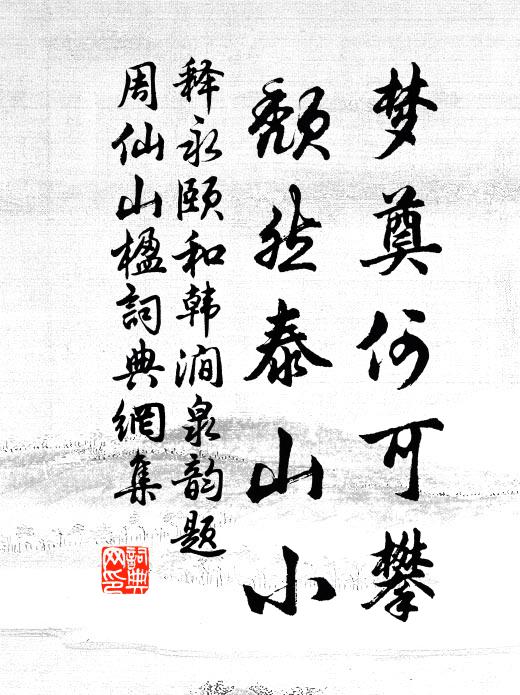 梦奠何可攀
颓然泰山小
释永颐和韩涧泉韵题
周仙山楹詞典網集
詞典网印